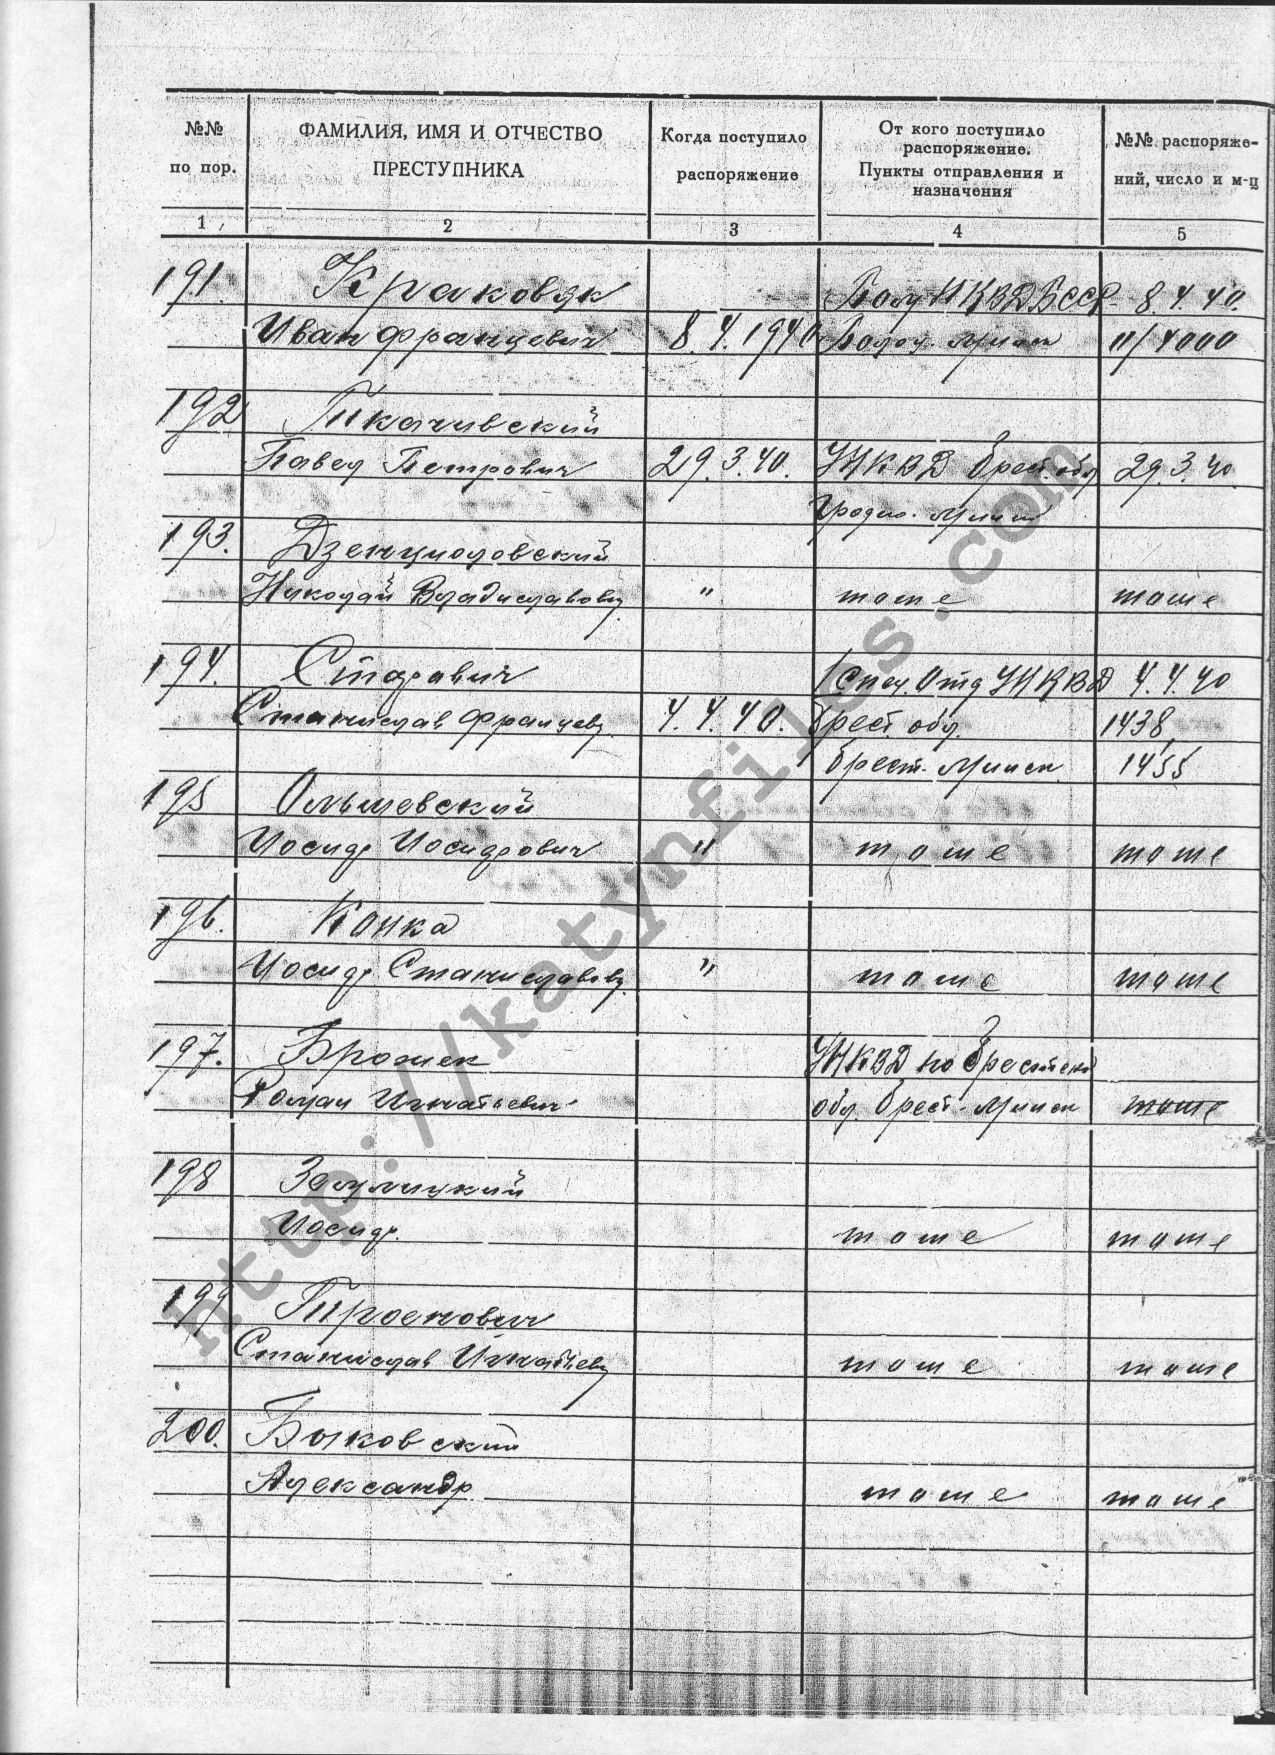 №№ по пор.
ФАМИЛИЯ, ИМЯ И ОТЧЕСТВО ПРЕСТУПНИКА
Когда поступило распоряжение
От кого поступило распоряжение. Пункты отправления и назначения
№№ распоряжений, число и м-ц
1 2 3 4 5
191. Краковяк НКВД БССР 8.4.40.
Иван Францевич 8.4.1940 Минск 11/4000
192
Павел Петрович 29.3.40. УНКВД Брест. обл 29.3.40.
Гродно-Минск
193. Дзенциоловский
Николай Владиславов. " тоже тоже
194. Старович Спец. Отд УНКВД 4.4.40
Станислав Францев. 4.4.40. Брест. обл. 1438,
Брест-Минск 1455
195 Ольшевский
Иосиф Иосифович " тоже тоже
196. Конка
Иосиф Станиславов. " тоже тоже
197. Брожек УНКВД по Брестской
Роман Игнатьевич обл. Брест-Минск тоже
198
Иосиф. тоже тоже
199
Станислав Игнатьев тоже тоже
200. Быковский
Александр тоже тоже
http://katynfiles.com